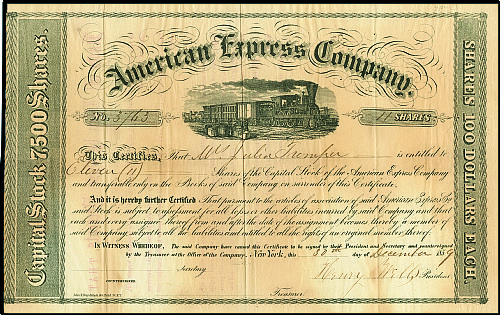 American Express Company.
No. 3763
11 SHARES
Capital Stock 7500 Shares.
SHARES 100 DOLLARS EACH.
This Certifies, That Mrs Julia Thompson is entitled to
Eleven (11) Shares of the Capital Stock of the American Express Company
and transferable only on the Books of said Company on surrender of this Certificate.
And it is hereby further Certified That pursuant to the articles of association of said American Express Co
said Stock is subject to assessment for all losses or other liabilities incurred by said Company and that
each and every assignee thereof from and after the date of the assignment becomes thereby a member of
said Company subject to all the liabilities and entitled to all the rights of an original member thereof.
IN WITNESS WHEREOF, The said Company have caused this Certificate to be signed by their President and Secretary and countersigned
by the Treasurer at the Office of the Company, New York, this 30th day of December 1859
Henry Wells President.
Secretary
COUNTERSIGNED
Treasurer